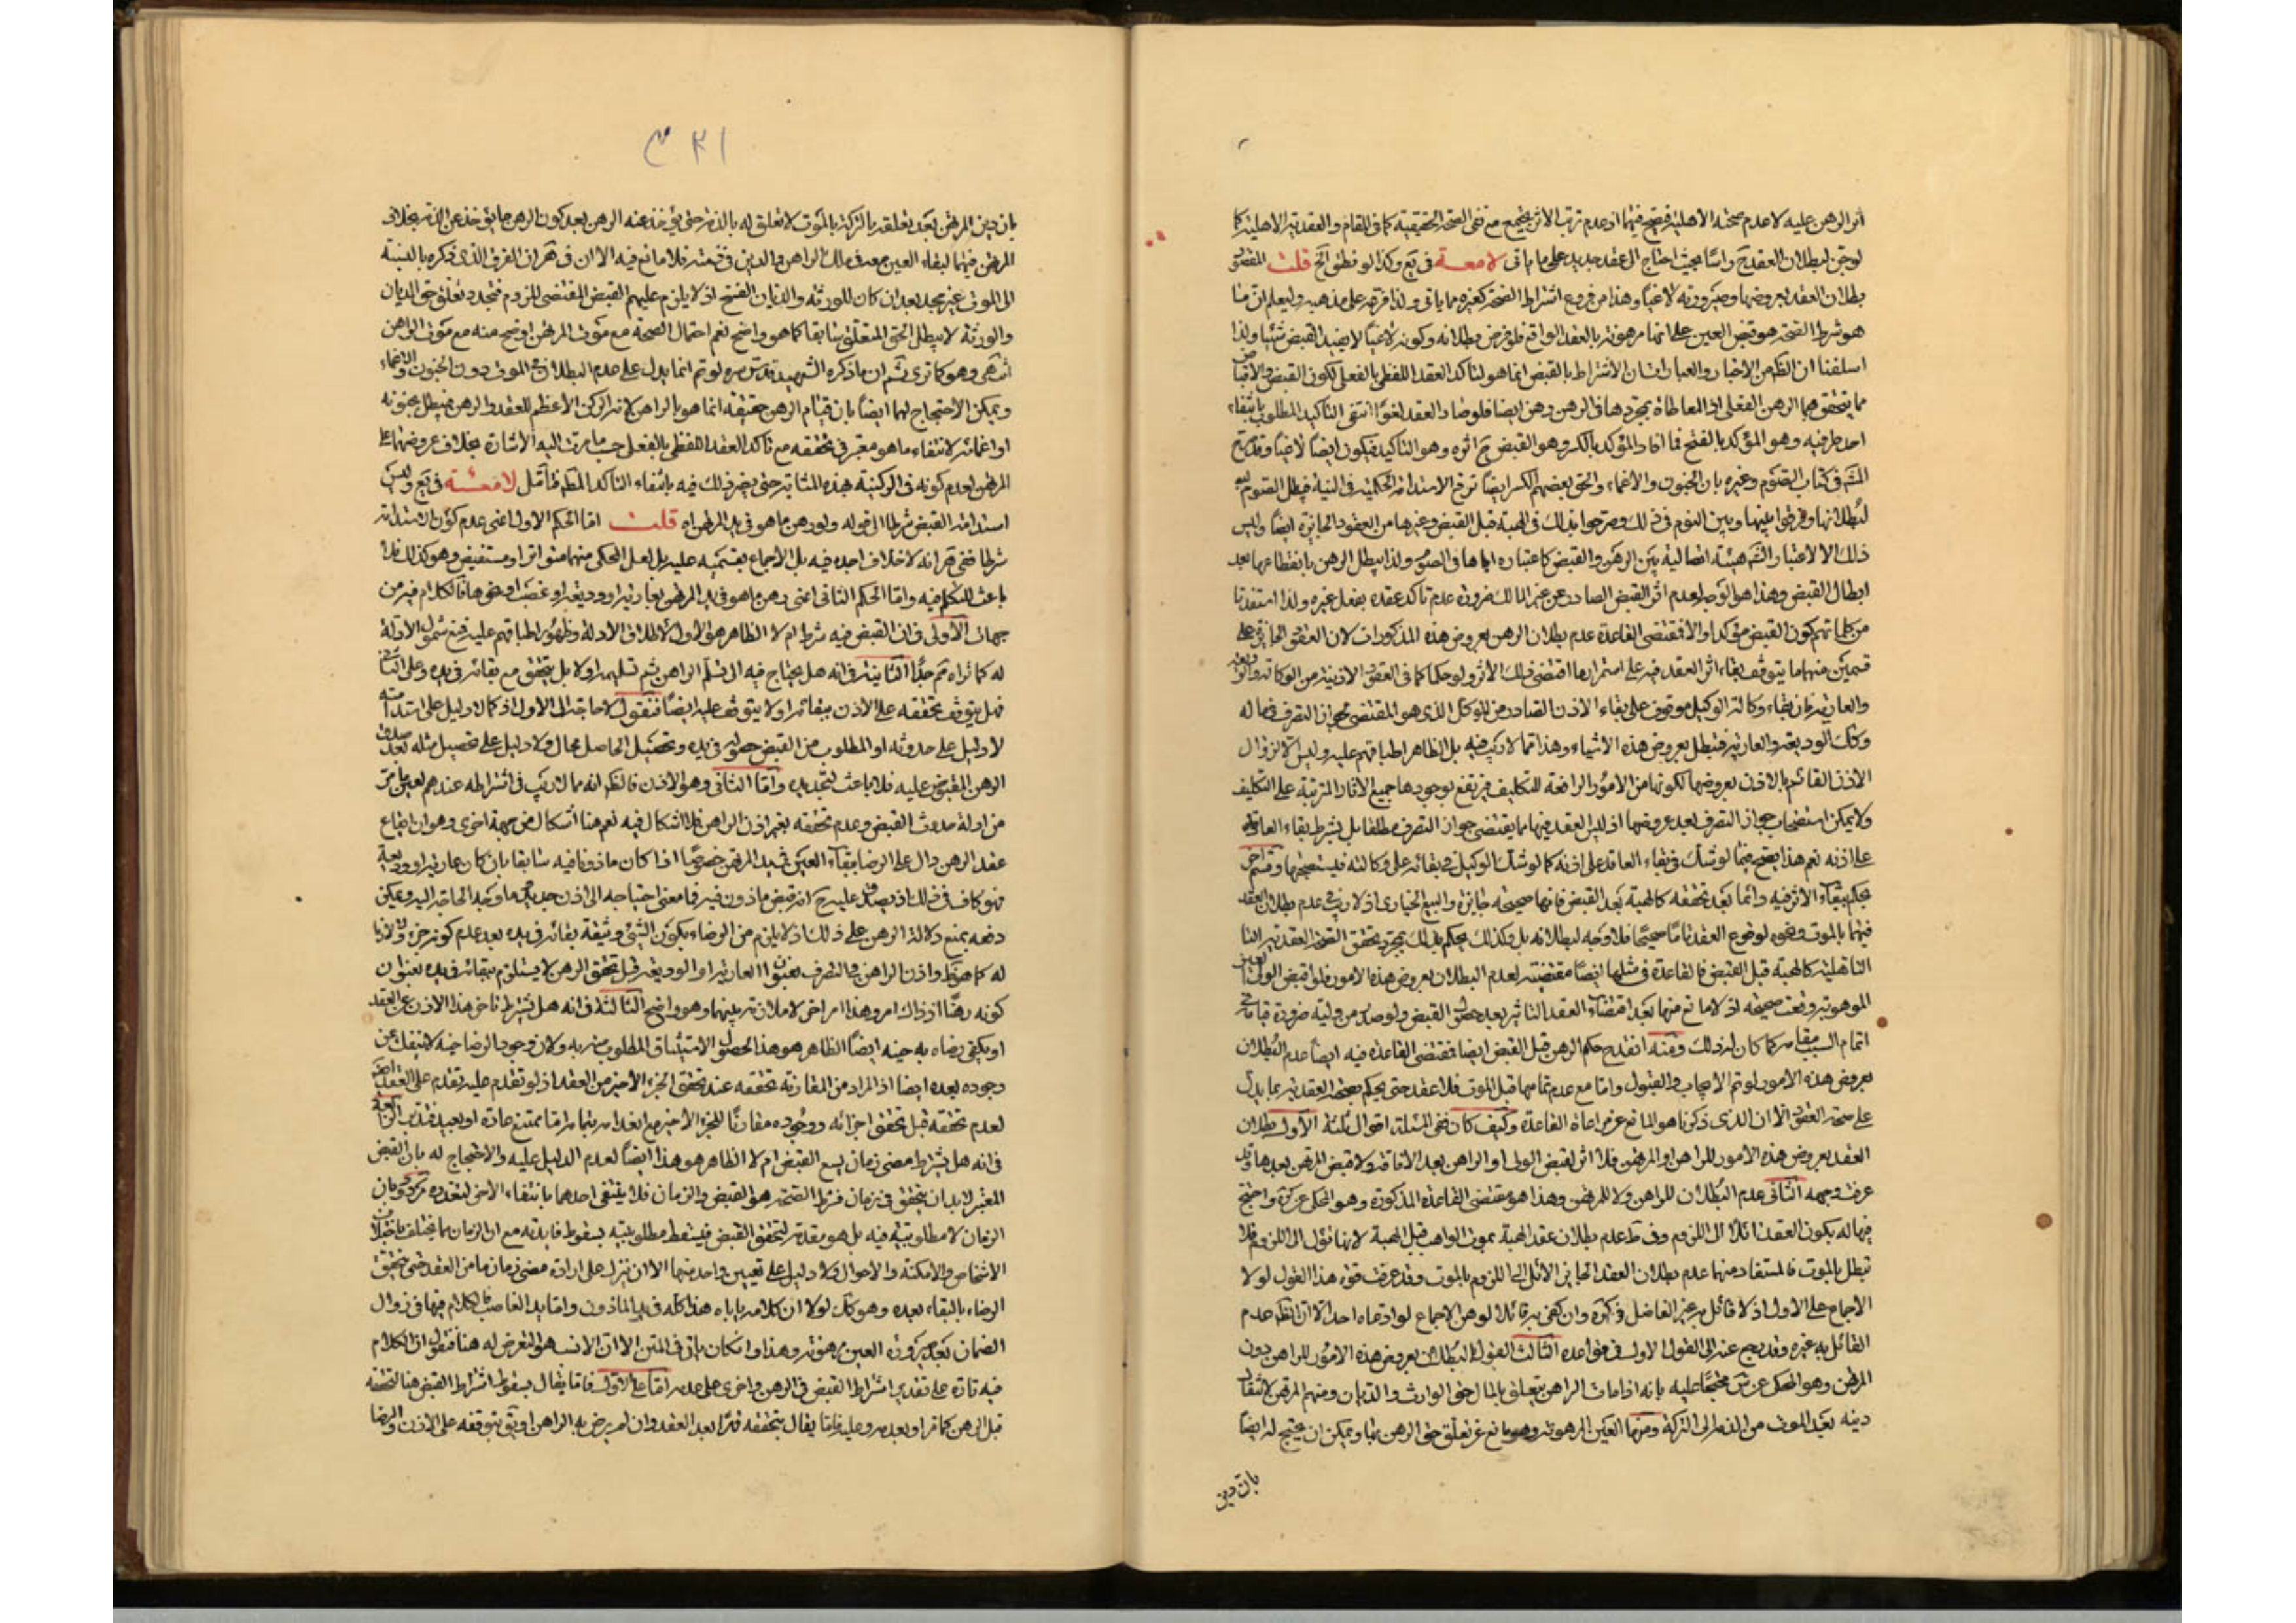 اثر الرهن عليه لا عدم صحته الاهلية فصح فيها اذ عدم ترتب الاثر يجتمع مع نفي الصحة الحقيقية كما في المقام والعقدية الاهلية كما
لو جن لبطلان العقد ح راسا بحيث احتاج الى عقد جديد على ما ياتى لامعة فى يع وكذا لو نطق الخ قلت المقصود
بطلان العقد بعروضها وصيرورته لاغيا وهذا من فروع اشتراط الصحة كغيره مما ياتى ولذا فرعه على مذهبه وليعلم ان ما
هو شرط الصحة هو قبض العين على انها مرهونة بالعقد الواقع فلو فرض بطلانه وكونه لاغيا لا يفيد القبض شيئا ولذا
اسلفنا ان الظ من الاخبار والعبارات ان الاشتراط بالقبض انما هو لتاكد العقد اللفظى بالفعلى لكون القبض والاقباض
مما يتحقق بهما الرهن الفعلى اذ المعاطاة بمجردها فى الرهن رهن ايضا فلو صار العقد لغوا انتفى التاكيد المطلوب بانتفاء
احد طرفيه وهو المؤكد بالفتح فما افاد المؤكد بالكسر وهو القبض ح اثره وهو التاكيد فيكون ايضا لاغيا وقد صرح
فى كتاب الصوم وغيره بان الجنون والاغماء والحق بعضهم السكر ايضا ترفع الاستدامة الحكمية فى النية فيبطل الصوم بها
لبطلانها وفرقوا بينها وبين النوم فى ذلك وصرحوا بذلك فى الهبة قبل القبض وغيرها من العقود الجائزة ايضا وليس
ذلك الا لاعتبار الشارع هيئة اتصالية بين الرهن والقبض كاعتباره اياها فى الصوم ولذا يبطل الرهن بانقطاعها بعد
ابطال القبض وهذا هو الوجه لعدم اثر القبض الصادر عن غير المالك ضرورة عدم تاكد عقده بفعل غيره ولذا استفدنا
من كلماتهم كون القبض مؤكدا والا فمقتضى القاعدة عدم بطلان الرهن بعروض هذه المذكورات لان العقود الجائزة على
قسمين منها ما يتوقف بقاء اثر العقد فيه على استمرار ما اقتضى ذلك الاثر ولو حكما كما فى العقود الاذنية من الوكالة والوديعة
والعارية فان بقاء وكالة الوكيل موقوف على بقاء الاذن الصادر من الموكل الذى هو المقتضى لجواز التصرف فى ماله
وكك الوديعة والعارية فتبطل بعروض هذه الاشياء وهذا مما لا ريب فيه بل الظاهر اطباقهم عليه وليس الا لزوال
الاذن القائم بالاذن بعروضها لكونها من الامور الرافعة للتكليف فيرتفع بوجودها جميع الاثار المترتبة على التكليف
ولا يمكن استصحاب جواز التصرف بعد عروضها اذ ليس العقد فيها مما يقتضى جواز التصرف مطلقا بل بشرط بقاء العاقد
على اذنه نعم هذا يصح فيما لو شك فى بقاء العاقد على اذنه كما لو شك الوكيل فى بقائه على وكالته فيستصحبها وقسم اخر
يحكم ببقاء الاثر فيه دائما بعد تحققه كالهبة بعد القبض فانها صحيحة جائزة والبيع الخيارى اذ لا ريب فى عدم بطلان العقد
فيها بالموت ونحوه لوقوع العقد تاما صحيحا فلا وجه لبطلانه بل وكذلك يحكم بذلك بمجرد تحقق الصحة العقدية
التاهلية كالهبة قبل القبض فالقاعدة فى مثلها ايضا مقتضية لعدم البطلان بعروض هذه الامور فلو اقبض الولى العين
الموهوبة وقعت صحيحة اذ لا مانع منها بعد اقتضاء العقد التاثير بعد حصول القبض ولو صدر من وليه ضرورة قيامه فى
اتمام السبب مقامه كما كان له ذلك ومنه انقدح حكم الرهن قبل القبض ايضا فمقتضى القاعدة فيه ايضا عدم البطلان
بعروض هذه الامور لو تم الايجاب والقبول واما مع عدم تمامهما قبل الموت فلا عقد حتى يحكم بصحته العقدية بما يدل
على صحة العقود الا ان الذى ذكرنا هو المانع عن مراعاة القاعدة وكيف كان ففى المسئلة اقوال ثلثة الاول بطلان
العقد بعروض هذه الامور للراهن او المرتهن فلا اثر لقبض الولى او الراهن بعد الافاقة ولا قبض المرتهن بعدها وقد
عرفت وجهه الثانى عدم البطلان للراهن ولا للمرتهن وهذا هو مقتضى القاعدة المذكورة وهو المحكى عن كرة واحتج
فيها له بكون العقد ائلا الى اللزوم وفى ط عدم بطلان عقد الهبة بموت الواهب قبل الهبة لانها تؤل الى اللزوم فلا
تبطل بالموت فالمستفاد منهما عدم بطلان العقد الجائز الائل الى اللزوم بالموت وقد عرفت قوة هذا القول لولا
الاجماع على الاول اذ لا قائل به غير الفاضل فى كرة وان كفى به قائلا لوهن الاجماع لو ادعاه احد الا ان الظ عدم
القائل به غيره وقد رجع عنه الى القول الاول فى قواعده الثالث القول بالبطلان بعروض هذه الامور للراهن دون
المرتهن وهو المحكى عن س محتجا عليه بانه اذا مات الراهن يتعلق بالمال حق الوارث والديان ومنهم المرتهن لانتقال
دينه بعد الموت من الذمة الى التركة ومنها العين المرهونة وهو مانع عن تعلق حق الرهن بها ويمكن ان يحتج له ايضا
بان دين
٣٢١
بان دين المرتهن بعد تعلقه بالتركة بالموت لا تعلق له بالذمة حتى يؤخذ عنه الرهن بعد كون الرهن ما يؤخذ عن الذمة بخلاف
المرتهن فيهما لبقاء العين بعد فى ملك الراهن والدين فى ذمته فلا مانع فيه الا ان فى الفرق الذى ذكره بالنسبة
الى الموت غير مجد بعد ان كان للورثة والديان الفسخ اذ لا يلزم عليهم القبض المقتضى للزوم فتجدد تعلق حق الديان
والورثة لا يبطل الحق المتعلق سابقا كما هو واضح نعم احتمال الصحة مع موت المرتهن اوضح منه مع موت الراهن
انتهى وهو كما ترى ثم ان ما ذكره الشهيد قدس سره لو تم انما يدل على عدم البطلان فى الموت دون الجنون والاغماء
ويمكن الاحتجاج لهما ايضا بان قيام الرهن حقيقة انما هو بالراهن لانه الركن الاعظم للعقد والرهن فيبطل بجنونه
او اغمائه لانتفاء ما هو معتبر فى تحققه من تاكد العقد اللفظى بالفعلى حسب ما مرت اليه الاشارة بخلاف عروضهما على
المرتهن لعدم كونه فى الركنية بهذه المثابة حتى يضر ذلك فيه بانتفاء التاكد المط فتامل لامعة فى يع وليس
استدامة القبض شرطا الى قوله ولو رهن ما هو فى يد المرتهن اه قلت اما الحكم الاول اعنى عدم كون الاستدامة
شرطا ففى هر انه لا خلاف اجده فيه بل الاجماع بقسميه عليه بل لعل المحكى منهما متواتر او مستفيض وهو كذلك فلا
باعث للتكلم فيه واما الحكم الثانى اعنى رهن ما هو فى يد المرتهن بعارية او وديعة او غصب او نحوها فالكلام فيه من
جهات الاولى فى ان القبض فيه شرط ام لا الظاهر هو الاول لاطلاق الادلة وظهور اطباقهم عليه فمنع شمول الادلة
له كما تراه مم جدا الثانية فى انه هل يحتاج فيه الى تسلم الراهن ثم تسليمه او لا بل يتحقق مع بقائه فى يده وعلى الثانى
فهل يتوقف تحققه على الاذن ببقائه او لا يتوقف عليه ايضا فنقول لا حاجة الى الاول اذ كما لا دليل على استدامته
لا دليل على حدوثه او المطلوب من القبض حصوله فى يده وتحصيل الحاصل محال ولا دليل على تحصيل مثله بعد صدق
الرهن المقبوض عليه فلا باعث لتجديده واما الثانى وهو الاذن فالظ انه مما لا ريب فى اشتراطه عندهم لعين ما مر
من ادلة حدوث القبض وعدم تحققه بغير اذن الراهن فلا اشكال فيه نعم هنا اشكال من جهة اخرى وهو ان ايقاع
عقد الرهن دال على الرضا ببقاء العين فى يد المرتهن خصوصا اذا كان ماذونا فيه سابقا بان كان عارية او وديعة
فهو كاف فى ذلك اذ يصدق عليه ح انه قبض ماذون فيه فما معنى احتياجه الى اذن جديد وما وجه الحاجة اليه ويمكن
دفعه بمنع دلالة الرهن على ذلك اذ لا يلزم من الرضاء بكون الشئ وثيقة بقائه فى يده بعد عدم كونه جزء ولا لازما
له كما هو ظ واذن الراهن فى التصرف بعنوان العارية او الوديعة قبل تحقق الرهن لا يستلزم ببقائه فى يده بعنوان
كونه رهنا اذ ذاك امر وهذا امر اخر لا ملازمة بينهما وهو واضح الثالثة فى انه هل يشترط تاخر هذا الاذن عن العقد
او يكفى رضاه به حينه ايضا الظاهر هو هذا لحصول الاستيثاق المطلوب منه به ولان وجود الرضا حينه لا ينفك عن
وجوده بعده ايضا اذ المراد من المقارنة تحققه عند تحقق الجزء الاخير من العقد اذ لو تقدم عليه تقدم على العقد
لعدم تحققه قبل تحقق اجزائه ووجوده مقارنا للجزء الاخير مع انعدامه بتمامه اما ممتنع عادة او بعيد فتدبر الرابعة
فى انه هل يشترط مضى زمان يسع القبض ام لا الظاهر هو هذا ايضا لعدم الدليل عليه والاحتجاج له بان القبض
المعتبر لا بد ان يتحقق فى زمان فشرط الصحة هو القبض والزمان فلا ينتفى احدهما بانتفاء الاخر لتعدده مردود بان
الزمان لا مطلوبية فيه بل هو مقدمة لتحقق القبض فيسقط مطلوبيته بسقوط فايدته مع ان الزمان مما يختلف باختلاف
الاشخاص والامكنة والاحوال ولا دليل على تعيين واحد منها الا ان ينزل على ارادة مضى زمان ما من العقد حتى يتحقق
الرضاء بالبقاء بعده وهو كك لولا ان كلامه ياباه هذا كله فى يد الماذون واما يد الغاصب فالكلام فيها فى زوال
الضمان بعد صيرورة العين مرهونة وهذا وان كان ياتى فى المتن الا ان الانسب هو التعرض له هنا فنقول ان الكلام
فيه تارة على تقدير اشتراط القبض فى الرهن واخرى على عدمه اما على الاول فاما يقال بسقوط اشتراط القبض هنا لتحققه
قبل الرهن كما مر او بعدمه وعليه فاما يقال بتحققه قهرا بعد العقد وان لم يرض به الراهن او يق بتوقفه على الاذن والرضا